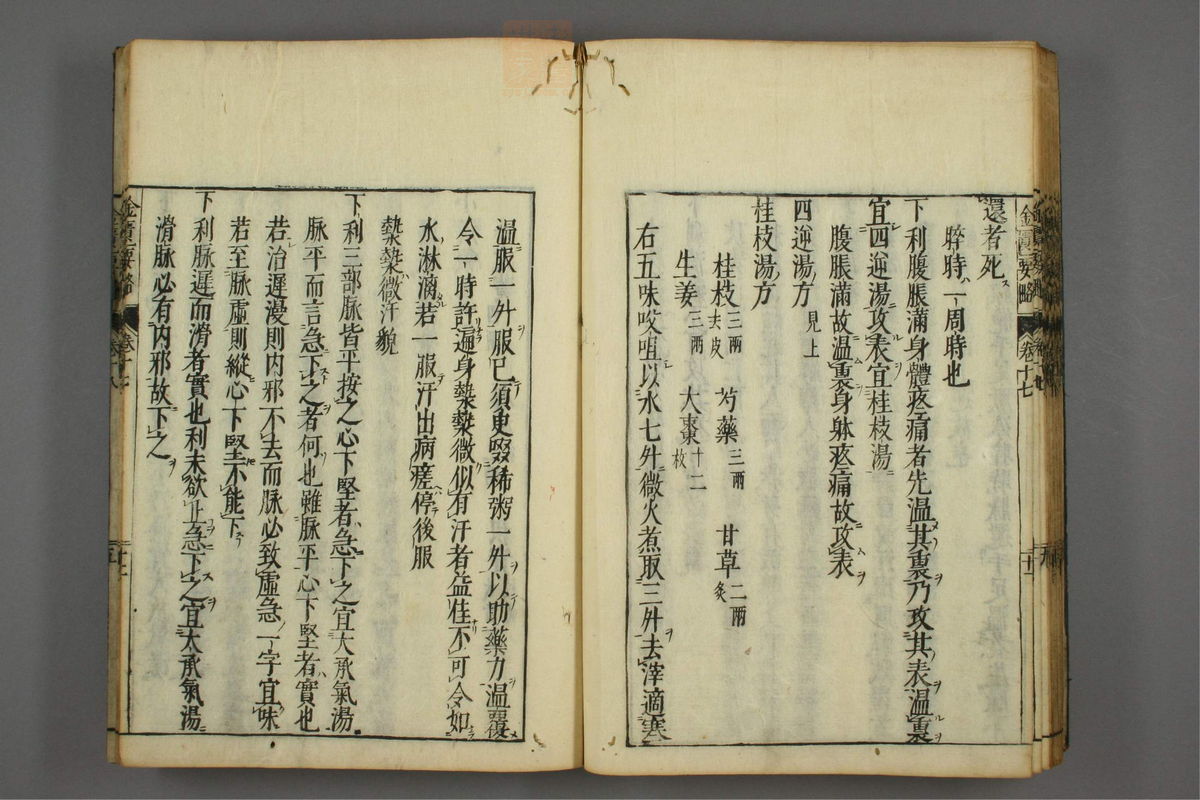 還者死
晬時一周時也
下利腹脹滿身體疼痛者先温其裏乃攻其表温裏
宜四逆湯攻表宜桂枝湯
腹脹滿故温裏身躰疼痛故攻表
四逆湯方 見上
桂枝湯方
桂枝 三兩去皮 芍藥 三兩 甘草 二兩炙
生姜 三兩 大棗 十二枚
右五味㕮咀以水七升微火煮取三升去滓適寒
温服一升服已須臾啜稀粥一升以助藥力温覆
令一時許遍身漐漐微似有汗者益佳不可令如
水淋漓若一服汗出病瘥停後服
漐漐微汗貌
下利三部脉皆平按之心下堅者急下之宜大承氣湯
脉平而言急下之者何也雖脉平心下堅者實也
若治遲漫則内邪不去而脉必致虛急一字宜味
若至脉虛則縱心下堅不能下
下利脉遲而滑者實也利未欲止急下之宜大承氣湯
滑脉必有内邪故下之
金匱要略 卷十七
金匱要略